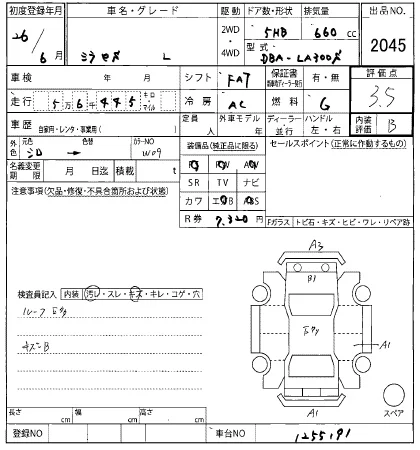 初度登録年月 車名・グレード 駆動 ドア数・形状 排気量 出品NO.
26/6月 ミラ L 2WD・4WD 5HB 660cc 2045
型式 DBA-LA300
車検 年 月 シフト FA7 保証書 有・無 評価点
走行 5万6千445 キロ・マイル 冷房 AC 燃料 G 3.5
車歴 自家用・レンタ・事業用( ) 定員 人 外車モデル 年 ディーラー・並行 ハンドル 左・右 内装評価 B
外色 元色 シロ → 色替 カラーNO W09
装備品(純正品に限る) セールスポイント(正常に作動するもの)
名義変更期限 月 日迄 積載 t
PS PW AW
注意事項(欠品・修復・不具合箇所および状態)
SR TV ナビ
カワ エアB ABS
R券 7,320円
Fガラス トビ石・キズ・ヒビ・ワレ・リペア跡
A3
B1
検査員記入 内装 汚レ・スレ・キズ・キレ・コゲ・穴
ルーフ
キズB
A1
A1
スペア
長さ cm 幅 cm 高さ cm
登録NO 車台NO 1255191